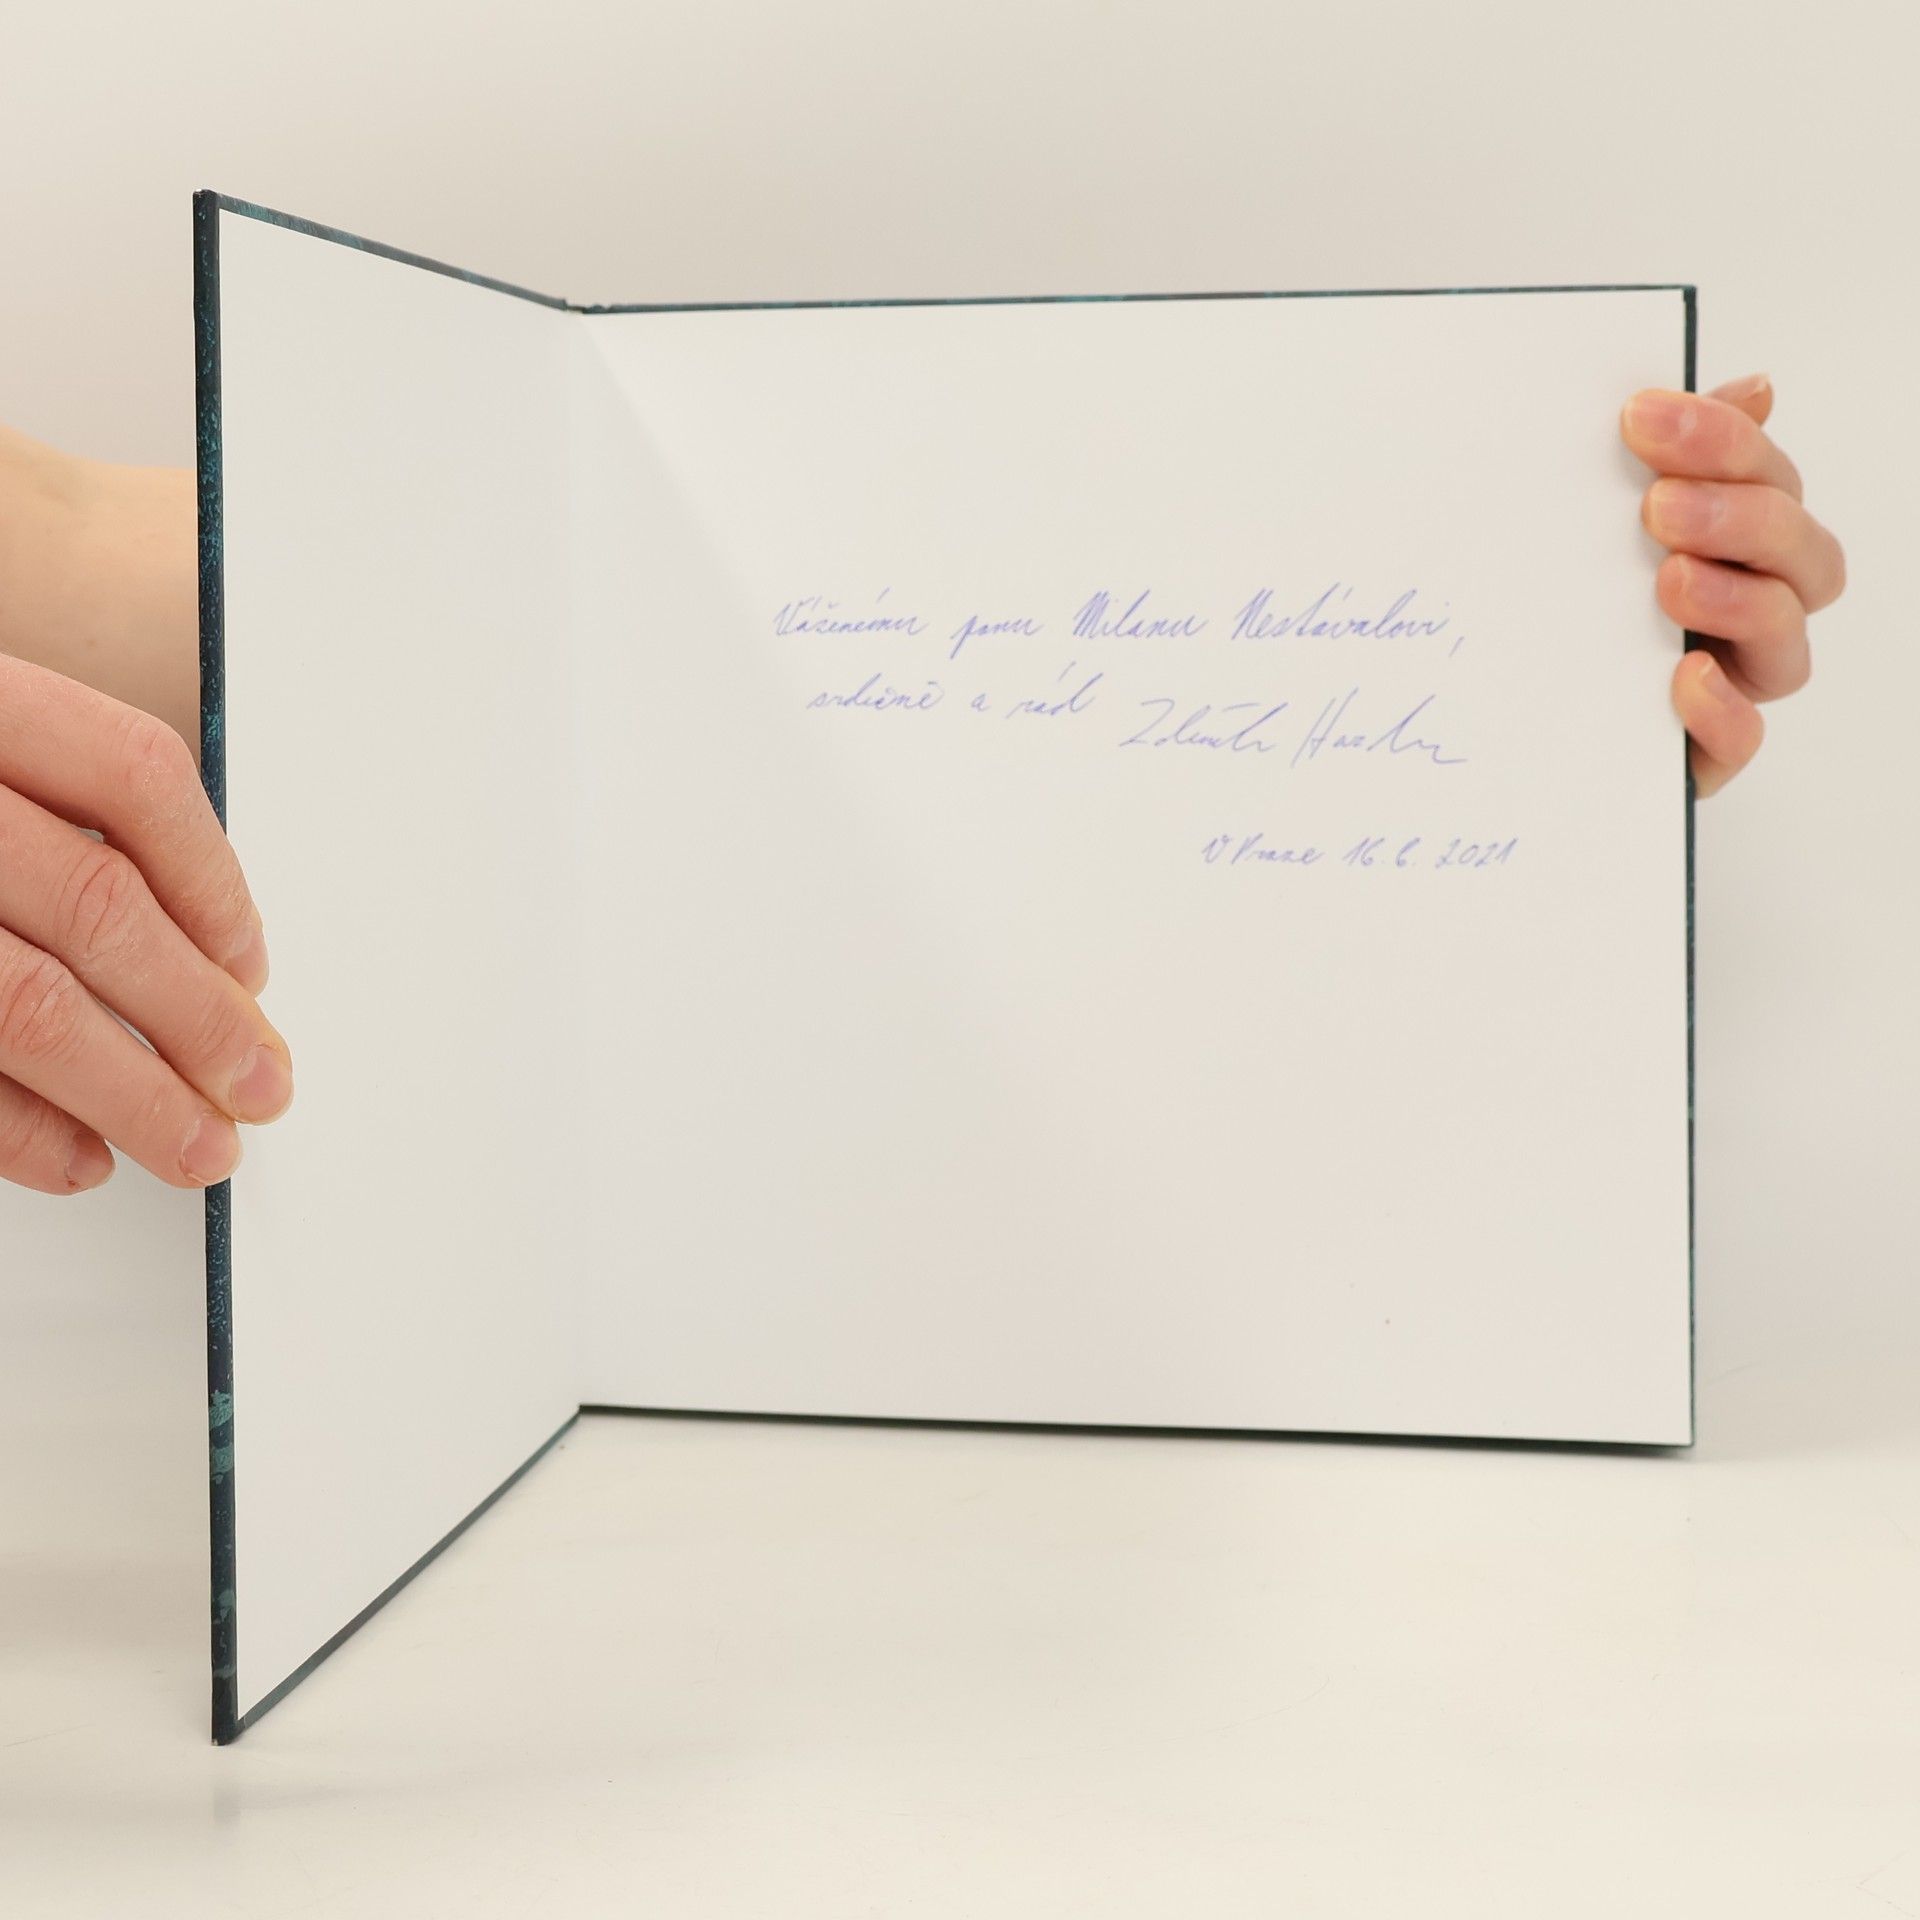 Váženému panu Milanu Nestávalovi,
srdečně a rád Zdeněk
V Praze 16. 6. 2021